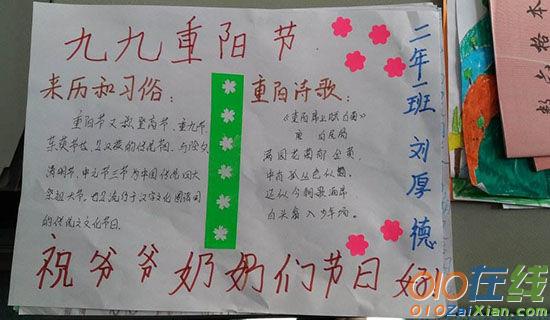 九九重阳节
来历和习俗：
重阳节又称登高节、重九节、
茱萸节、也是汉族的传统节日、与除夕
清明节、中元节三节为中国传统四大
祭祖大节。也是流行于汉字文化圈诸国
的传统文化节日。
重阳诗歌：
唐
满园花菊郁金黄，
中有孤丛色似霜。
还似今朝歌酒席
白头翁入少年场。
二年一班 刘厚德
祝爷爷奶奶们节日好
010在线
010ZaiXian.com